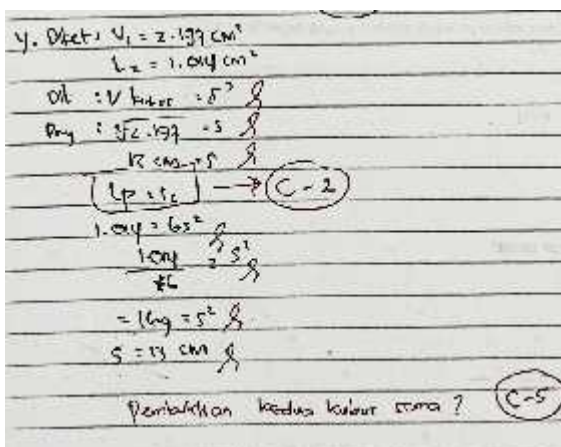 4. Diket : V₁ = 2.197 cm³
L₂ = 1.014 cm²
Dit : V kubus = s³
: ∛2.197 = s
13 cm = s
Lp = → C-2
1.014 = 6s²
1.014 / 6 = s²
= 169 = s²
s = 13 cm
kedua kubus sama ? C-5